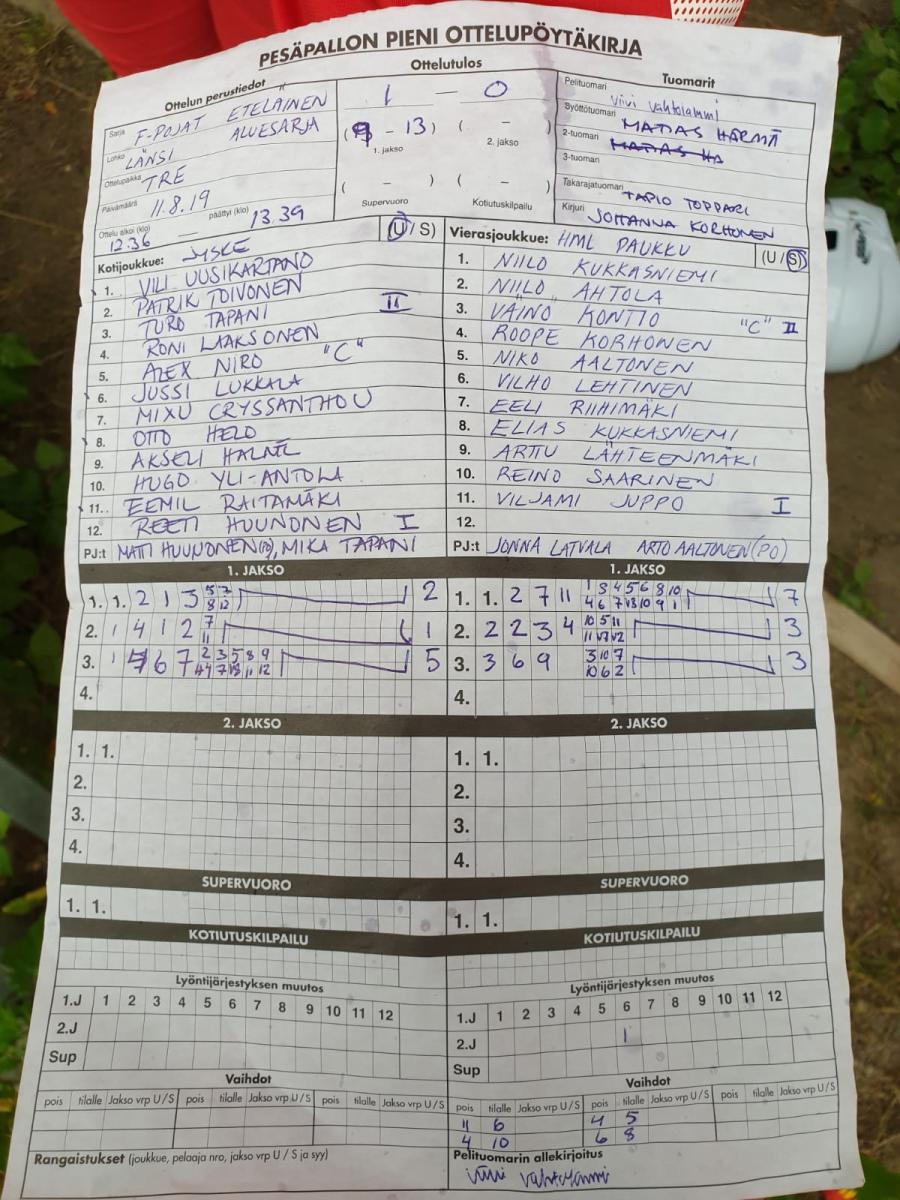 PESÄPALLON PIENI OTTELUPÖYTÄKIRJA
Ottelun perustiedot
Sarja F-POJAT ETELÄINEN
Lohko LÄNSI ALUESARJA
Ottelupaikka TRE
Päivämäärä 11.8.19
Ottelu alkoi (klo) 12.36 — päättyi (klo) 13.39
Ottelutulos
1 — 0
( - 13) ( - )
1. jakso 2. jakso
( - ) ( - )
Supervuoro Kotiutuskilpailu
Tuomarit
Pelituomari Viivi Vahtolammi
Syöttötuomari MATIAS HÄRMÄ
2-tuomari
3-tuomari
Takarajatuomari TAPIO TOPPARI
Kirjuri JOHANNA KORHONEN
Kotijoukkue: JYSKE (U / S)
1. VILI UUSIKARTANO
2. PATRIK TOIVONEN
3. TURO TAPANI II
4. RONI LAAKSONEN
5. ALEX NIRO "C"
6. JUSSI LUKKALA
7. MIXU CRYSSANTHOU
8. OTTO HELO
9. AKSELI
10. HUGO YLI-ANTOLA
11. EEMIL RAITAMÄKI
12. REETI HUUNONEN I
PJ:t MATTI HUUNONEN, MIKA TAPANI
Vierasjoukkue: HML PAUKKU (U / S)
1. NIILO KUKKASNIEMI
2. NIILO AHTOLA
3. VÄINÖ KONTIO "C" II
4. ROOPE KORHONEN
5. NIKO AALTONEN
6. VILHO LEHTINEN
7. EELI RIIHIMÄKI
8. ELIAS KUKKASNIEMI
9. ARTU LÄHTEENMÄKI
10. REINO SAARINEN
11. VILJAMI JUPPO I
12.
PJ:t JONNA LATVALA ARTO AALTONEN (PO)
1. JAKSO
1. 1. 2 1 3 2
2. 1 4 1 2 7 11 1
3. 1 6 7 5
4.
1. JAKSO
1. 1. 2 7 11 7
2. 2 2 3 4 3
3. 3 6 9 3
4.
2. JAKSO
1. 1.
2.
3.
4.
2. JAKSO
1. 1.
2.
3.
4.
SUPERVUORO
1. 1.
SUPERVUORO
1. 1.
KOTIUTUSKILPAILU
KOTIUTUSKILPAILU
Lyöntijärjestyksen muutos
1.J 1 2 3 4 5 6 7 8 9 10 11 12
2.J
Sup
Lyöntijärjestyksen muutos
1.J 1 2 3 4 5 6 7 8 9 10 11 12
2.J 1
Sup
Vaihdot
pois tilalle Jakso vrp U / S pois tilalle Jakso vrp U / S pois tilalle Jakso vrp U / S
Vaihdot
pois tilalle Jakso vrp U / S pois tilalle Jakso vrp U / S pois tilalle Jakso vrp U / S
11 6 4 5
4 10 6 8
Rangaistukset (joukkue, pelaaja nro, jakso vrp U / S ja syy)
Pelituomarin allekirjoitus
Viivi Vahtolammi